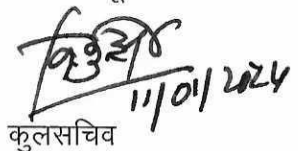 11/01/2024
कुलसचिव